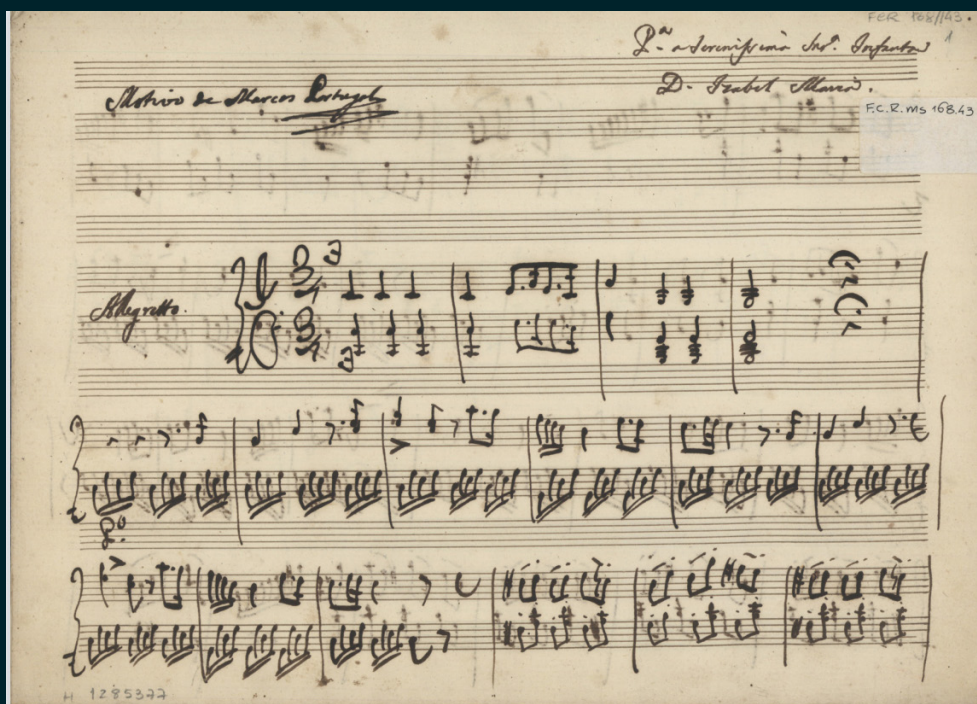 FCR 168//43.
1
Pª a Serenissima Snrª. Infanta
D. Izabel Maria.
Motivo de Marcos Portugal
F.C.R. ms 168.43
Allegretto.
3
4
3
3
4
3
pº
H 1285377